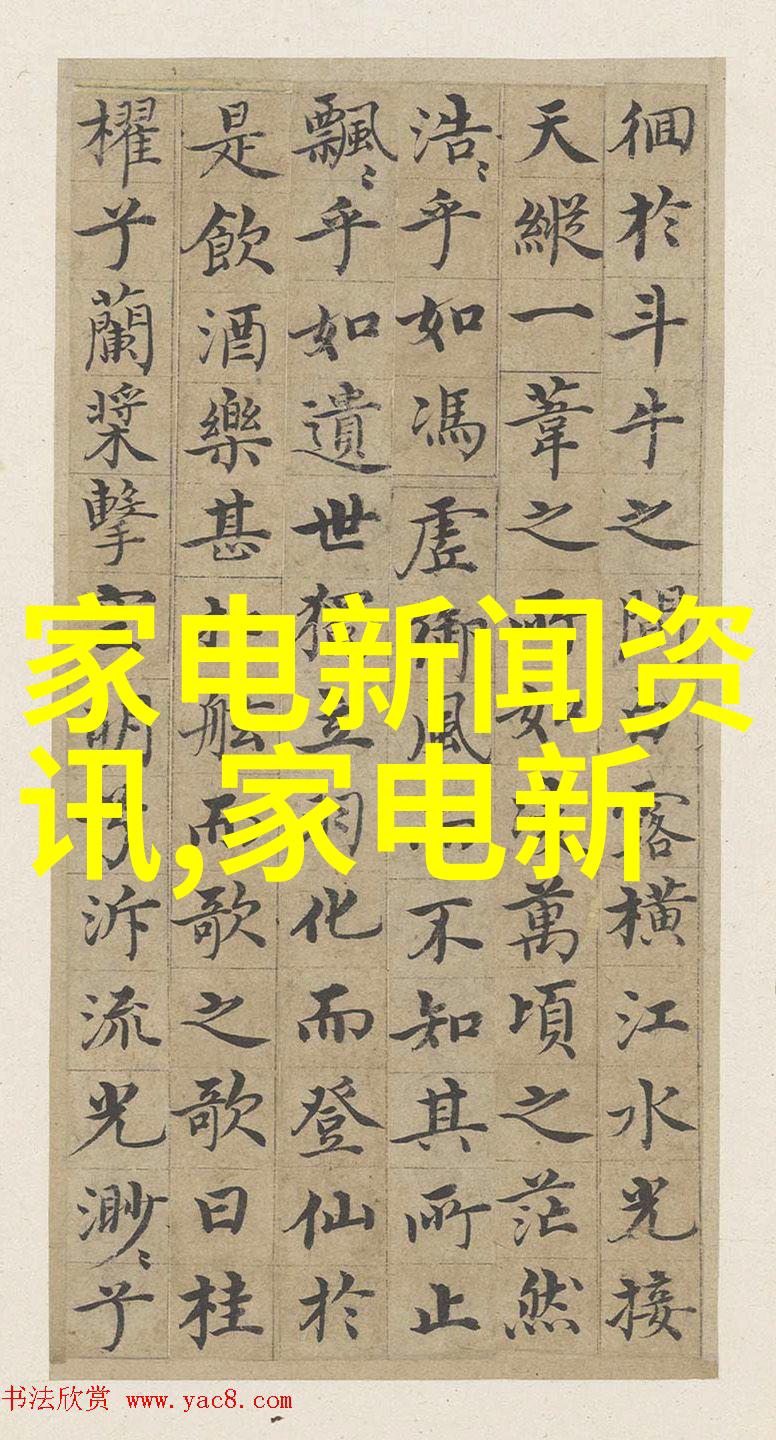 徊於斗牛之間白露橫江水光接
天縱一葦之所如凌萬頃之茫然
浩〻乎如馮虛御風而不知其所止
飄〻乎如遺世獨立羽化而登仙於
是飲酒樂甚扣舷而歌之歌曰桂
櫂兮蘭槳擊空明兮泝流光渺〻兮
家电新闻资
讯,家电新
书法欣赏 www.yac8.com